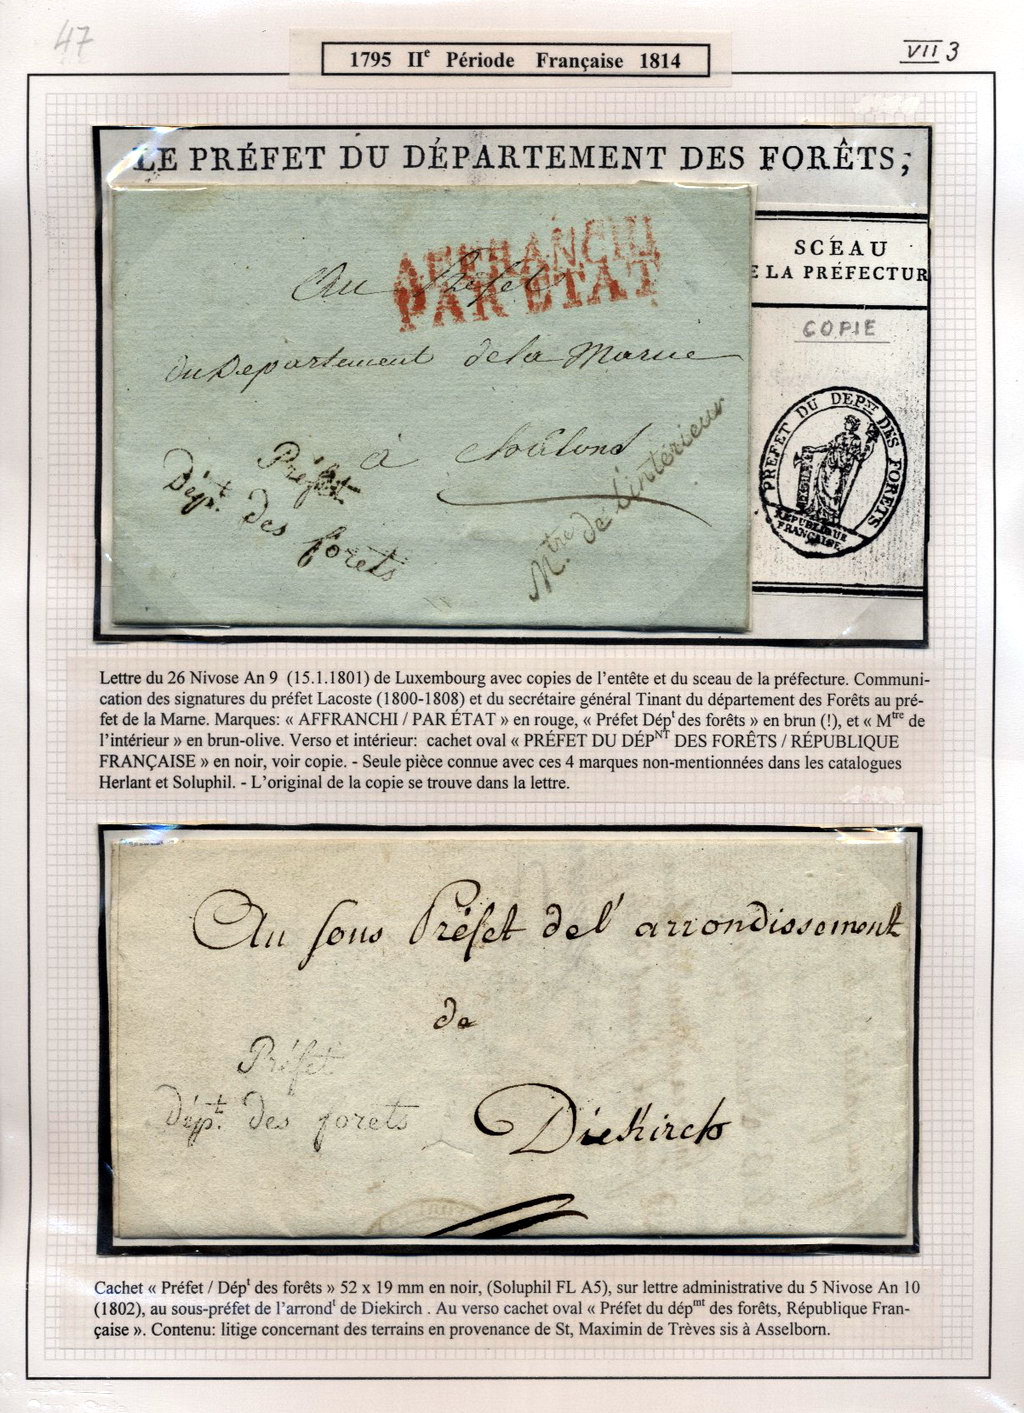 47
1795 IIe Période Française 1814
VII 3
LE PRÉFET DU DÉPARTEMENT DES FORÊTS,
SCEAU
E LA PRÉFECTUR
COPIE
PREFET DU DEP.NT DES FORETS
RÉPUBLIQUE
FRANÇAISE
AFFRANCHI
PAR ETAT
Au Préfet
du Departement de la Marne
à Chalons
Préfet
Dépt. des forets
Mtre. de l'intérieur
Lettre du 26 Nivose An 9 (15.1.1801) de Luxembourg avec copies de l'entête et du sceau de la préfecture. Communi-
cation des signatures du préfet Lacoste (1800-1808) et du secrétaire général Tinant du département des Forêts au pré-
fet de la Marne. Marques: « AFFRANCHI / PAR ÉTAT » en rouge, « Préfet Dépt des forêts » en brun (!), et « Mtre de
l'intérieur » en brun-olive. Verso et intérieur: cachet oval « PRÉFET DU DÉPNT DES FORÊTS / RÉPUBLIQUE
FRANÇAISE » en noir, voir copie. - Seule pièce connue avec ces 4 marques non-mentionnées dans les catalogues
Herlant et Soluphil. - L'original de la copie se trouve dans la lettre.
Au sous Préfet de l'arrondissement
de
Diekirch
Préfet
dépt. des forets
Cachet « Préfet / Dépt des forêts » 52 x 19 mm en noir, (Soluphil FL A5), sur lettre administrative du 5 Nivose An 10
(1802), au sous-préfet de l'arrondt de Diekirch . Au verso cachet oval « Préfet du dépmt des forêts, République Fran-
çaise ». Contenu: litige concernant des terrains en provenance de St, Maximin de Trèves sis à Asselborn.